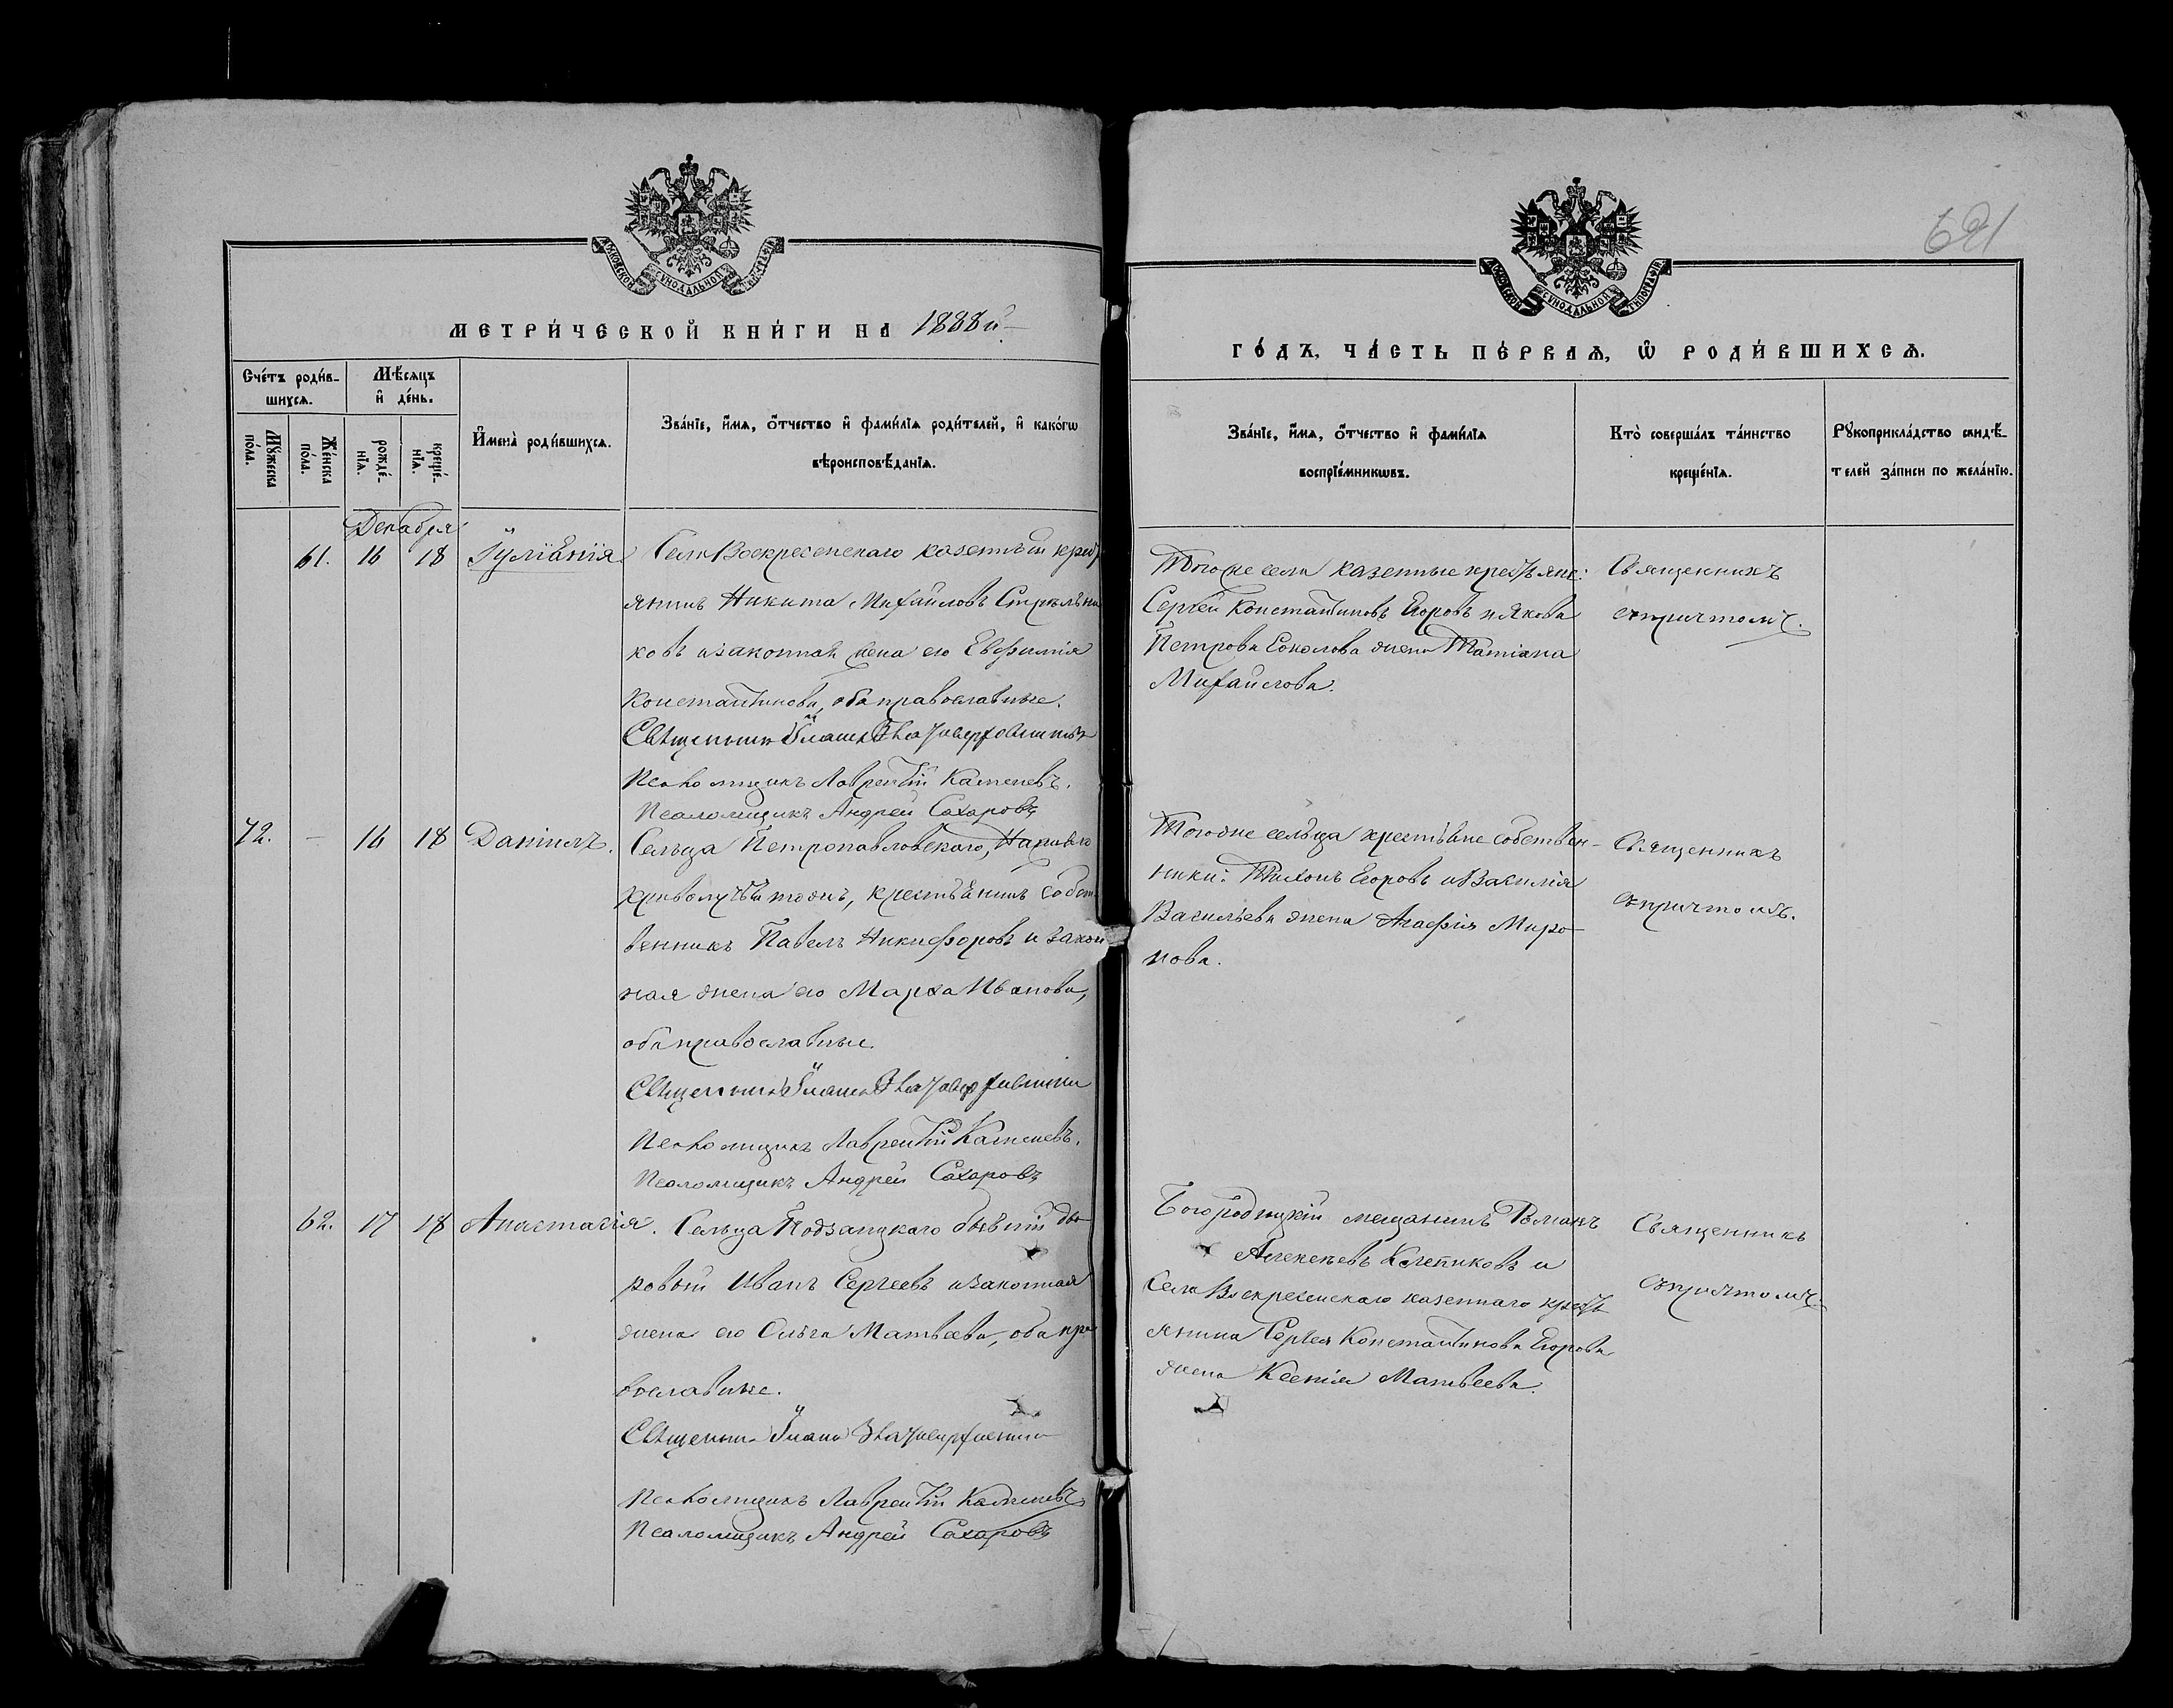 МОСКОВСКОЙ СѴНОДАЛЬНОЙ ТИПОГРАФІИ
МЕТРИ́ЧЕСКОЙ КНИ́ГИ НА 1888й
Сче́тъ роди́в-
шихсѧ.
Мѣ́сѧцъ
и҆ де́нь.
Мꙋ́жеска
по́ла.
Же́нска
по́ла.
рожде́-
нїѧ.
креще́-
нїѧ.
И҆мена̀ роди́вшихсѧ.
Зва́нїе, и҆́мѧ, ѻ҆́тчество и҆ фами́лїѧ роди́телей, и҆ како́гѡ
вѣроисповѣ́данїѧ.
Декабря
61. 16 18 Іуліанія
Села Воскресенскаго казенный кресть
янинъ Никита Михайловъ Стрѣльни
ковъ и законная жена его Евфимія
Константинова, оба православные.
Священникъ Іоаннъ
Псаломщикъ Лаврентій Каменевъ.
Псаломщикъ Андрей Сахаровъ
72. — 16 18 Даніилъ.
Сельца Петропавловскаго,
тожъ, крестьянинъ собст
венникъ Павелъ Никифоровъ и закон
ная жена его Марѳа Иванова,
оба православные.
Священникъ Іоаннъ
Псаломщикъ Лаврентій Каменевъ.
Псаломщикъ Андрей Сахаровъ
62. 17 18 Анастасія.
Сельца бывшій дво
ровый Иванъ Сергѣевъ и законная
жена его Ольга Матвѣева, оба пра
вославные.
Священникъ Іоаннъ
Псаломщикъ Лаврентій Каменевъ
Псаломщикъ Андрей Сахаровъ
621
МОСКОВСКОЙ СѴНОДАЛЬНОЙ ТИПОГРАФІИ
ГО́ДЪ, ЧА́СТЬ ПЕ́РВАѦ, Ѡ҆ РОДИ́ВШИХСѦ.
Зва́нїе, и҆́мѧ, ѻ҆́тчество и҆ фами́лїѧ
воспрїе́мникѡвъ.
Кто̀ соверша́лъ та́инство
креще́нїѧ.
Рꙋкоприкла́дство свидѣ́-
телей за́писи по жела́нїю.
Того же села казенные крестьяне:
Сергей Константиновъ Егоровъ и Якова
Петрова Соколова жена Татіана
Михайлова.
Священникъ
съ причтомъ.
Тогоже сельца крестьяне собствен-
ники: Тихонъ Егоровъ и Василія
Васильева жена Агафія Миро-
нова.
Священникъ
съ причтомъ.
Богородицкій мещанинъ Романъ
Алексѣевъ Клепиковъ и
Села Воскресенскаго казеннаго кресть
янина Сергея Константинова Егорова
жена Ксенія Матвѣева.
Священникъ
съ причтомъ.